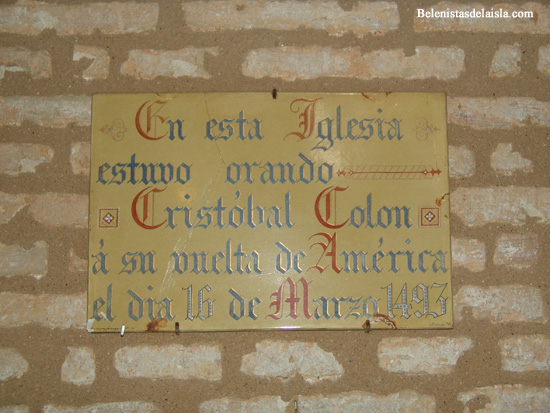 Belenistasdelaisla.com
En esta Iglesia
estuvo orando
Cristóbal Colon
á su vuelta de América
el dia 16 de Marzo 1493